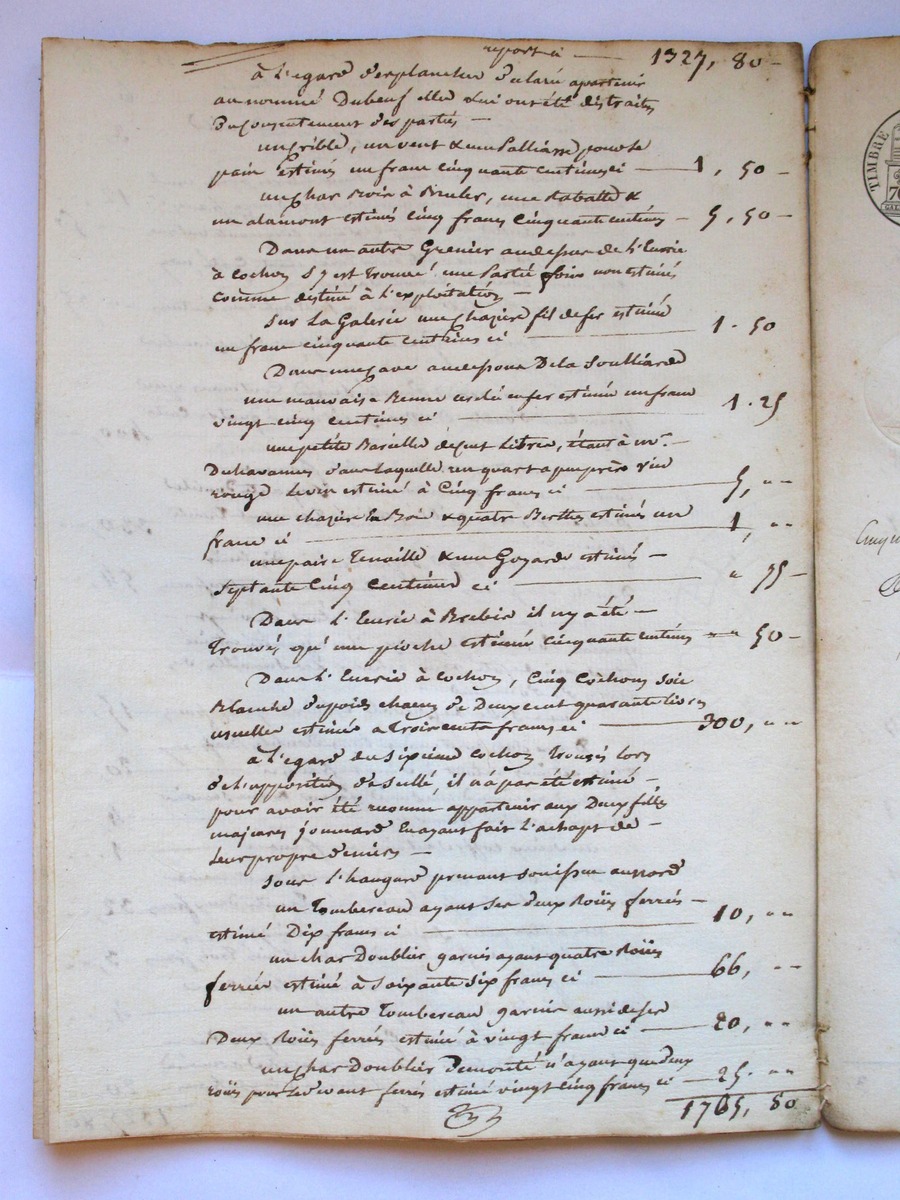 report ci — 1327, 80 -
à l'egard des planches de lariè apartenir
au nommé Dubeuf elle lui ont été distraites
du consentement des parties —
un Crible, un vent & une Palliasse pour le
pain estimés un franc cinquante centimes ci — 1, 50 -
un Char à Bruler, une Rabatte &
un alamont estimés cinq francs cinquante centimes - 5, 50 -
Dans un autre Grenier au dessus de l'Eurie
à cochon s'y est trouvé une Partie foin non estimés
comme destiné à l'exploitation —
Sur La Galerie une chazière fil de fer estimée
un franc cinquante centimes ci — 1 . 50
Dans une Cave au dessous De la Soulliarde
une mauvaise Benne cerclé en fer estimée un franc
vingt cinq centimes ci — 1 . 25
une petite Bareille de cent Litres, étant à mr. —
Duhavannes dans laquelle un quart a peu près vin
rouge le vin estimé à Cinq francs ci — 5, " "
une chazière en Bois & quatre Berthes estimés un
franc ci — 1, " "
une paire Tenaille & une Goyarde estimés —
Septante Cinq Centimes ci — " 75 -
Dans l'Eurie à Brebis il n'y a été —
Trouvés, qu'une pioche estimée cinquante centimes " " 50 -
Dans l'Eurrie à Cochon, Cinq Cochons Soie
Blanche du poids chacun de Deux cent quarante livres
usuelles estimés a Trois cents francs ci — 300, " "
à l'egard du Sixieme cochon trouvés lors
de l'apposition des Scellé, il n'a pas été estimé —
pour avoir été reconnu appartenir aux Deux filles
majeures jomard en ayant fait l'achapt de —
leurs propre deniers —
Sous l'hangard prenant son issue au nord
un Tombereau ayant ses deux Roües ferrés —
estimé Dix francs ci — 10, " "
un char Doublier garnis ayant quatre Roües
ferrées estimé à Soixante Six francs ci — 66, " "
un autre Tombereau garnie aussi de ses
Deux Roües ferrés estimé à vingt francs ci — 20, " "
un char Doublier Demonté n'ayant que deux
roües pour le devant ferrés estimé vingt cinq francs ci — 25 . " "
1765, 80
TIMBRE